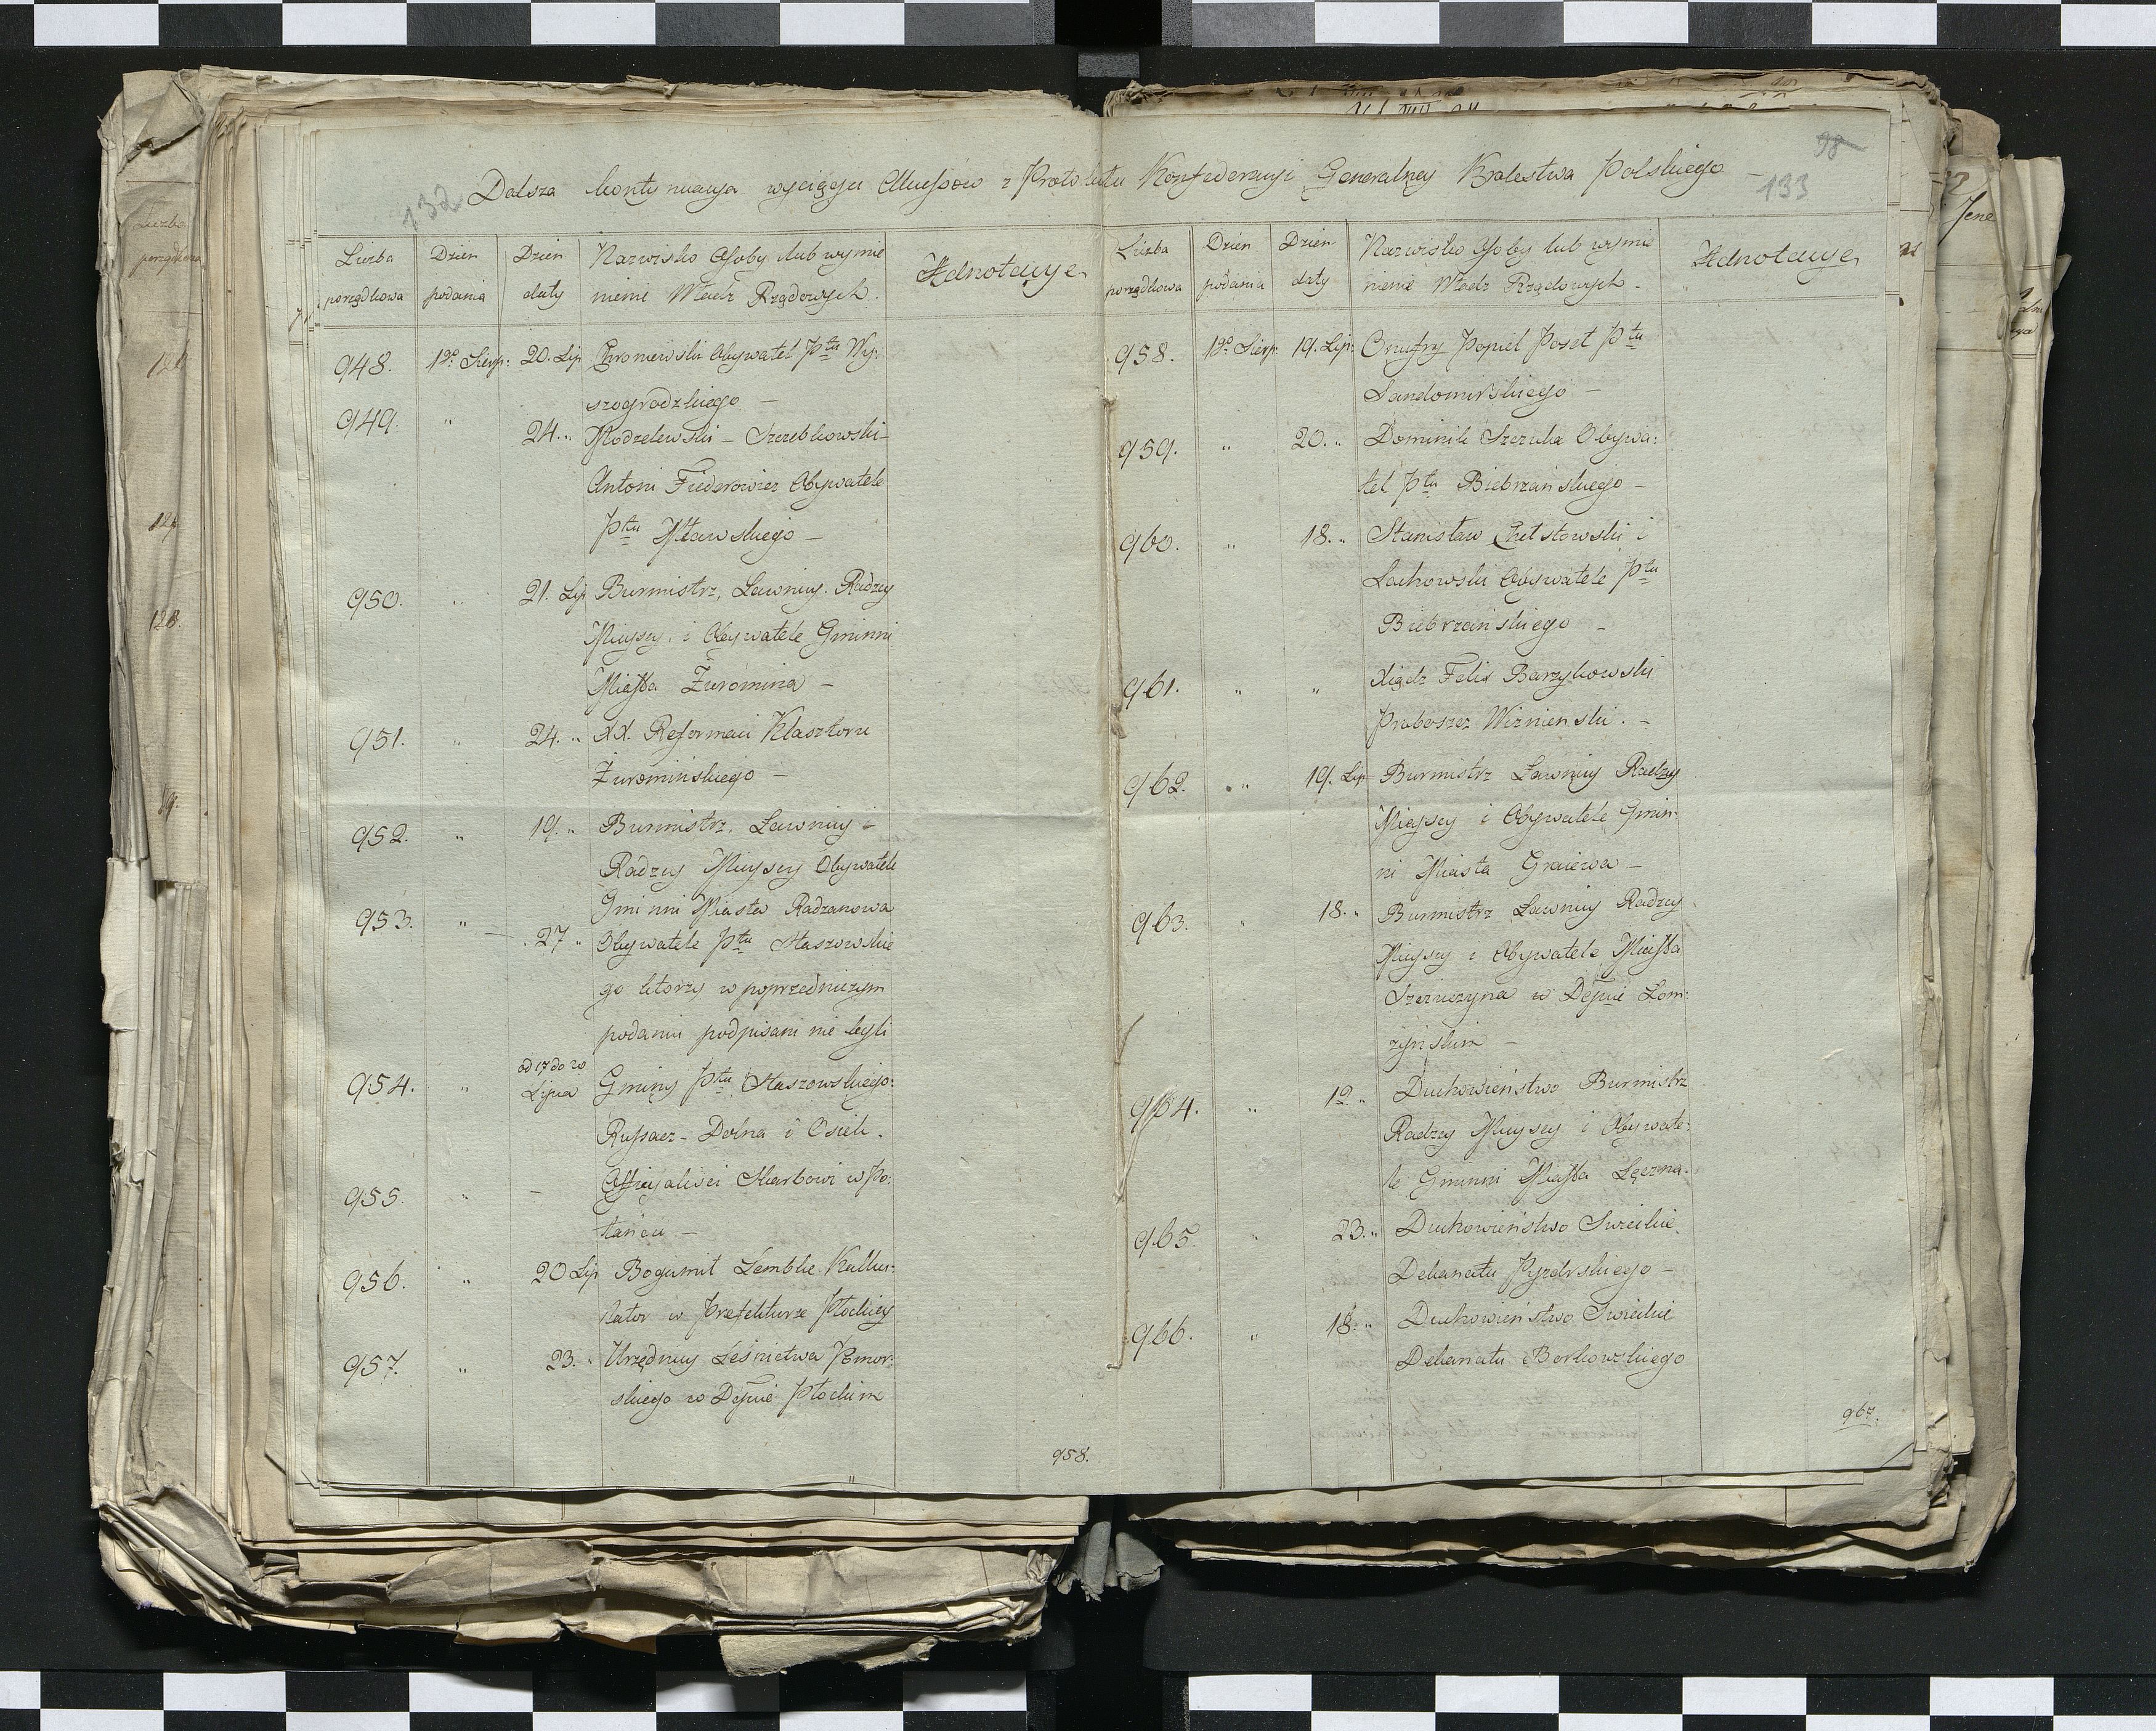 Dalsza kontynuacya wyciągu Akcessów z Protokułu Konfederacyi Generalney Krolestwa Polskiego
132
Liczba porządkowa
Dzień podania
Dzień daty
Nazwisko Osoby lub wymie
nienie Władz Rządowych.
Adnotacye
948. 12º Sierp: 20. Lip Chromewski Obywatel Ptu Wy:
szogrodzkiego –
949. " 24. " Modzelewski – Szczebkowski –
Antoni Fiederowicz Obywatele
Ptu Mławskiego –
950. " 21. Lip Burmistrz, Ławnicy. Radzcy
Mieyscy. i Obywatele Gminni
Miasta Żuromina –
951. " 24. " XX. Reformaci Klasztoru
Żuromińskiego –
952. " 19. " Burmistrz, Ławnicy i
Radzcy Mieyscy Obywatele
Gminni Miasta Radzanowa
953. " 27 " Obywatele Ptu Staszowskie
go którzy w poprzedniczym
podaniu podpisani nie byli
954. " od 17 do 20 Lipca Gminy Ptu Staszowskiego:
Rytwiany – Dolna i Osiek.
955. " – Officyaliści Skarbowi w Po:
łańcu –
956. " 20 Lip Bogumił Lembke Kalku:
lator w Prefekturze Płockiey
957. " 23. " Urzędnicy Leśnictwa Pomor:
skiego w Depcie Płockim
958.
98
133
Liczba porządkowa
Dzień podania
Dzień daty
Nazwisko Osoby lub wymie
nienie Władz Rządowych –
Adnotacye
958. 12º Sierp 19. Lip: Onufry Popiel Poseł Ptu
Sandomirskiego –
959. " 20. " Dominik Szczuka Obywa:
tel Ptu Biebrzańskiego –
960. " 18. " Stanisław Chełstowski i
Lachowski Obywatele Ptu
Biebrzańskiego –
961. " " Xiądz Felix Barzykowski
Proboszcz Wiznienski. –
962. " 19. Lip Burmistrz Ławnicy Radzcy
Mieyscy i Obywatele Gmin:
ni Miasta Graiewa –
963. " 18. " Burmistrz Ławnicy Radzcy
Mieyscy i Obywatele Miasta
Szczuczyna w Depcie Łom:
żyńskim –
964. " 19 " Duchowieństwo Burmistrz
Radzcy Mieyscy i Obywate:
le Gminni Miasta Łęczna.
965. " 23. " Duchowieństwo Swieckie
Dekanatu Pyzdrskiego –
966. " 18. " Duchowieństwo Swieckie
Dekanatu Borkowskiego
967.